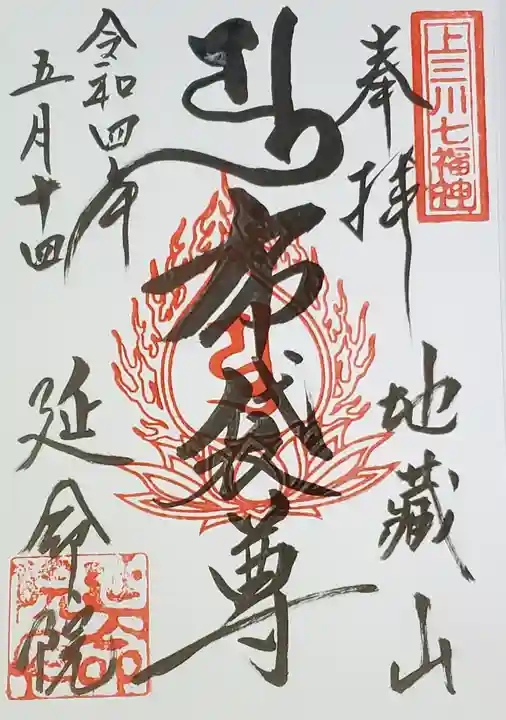 上三川七福神
奉拝
地蔵山
布袋尊
令和四年
五月十四
延命院